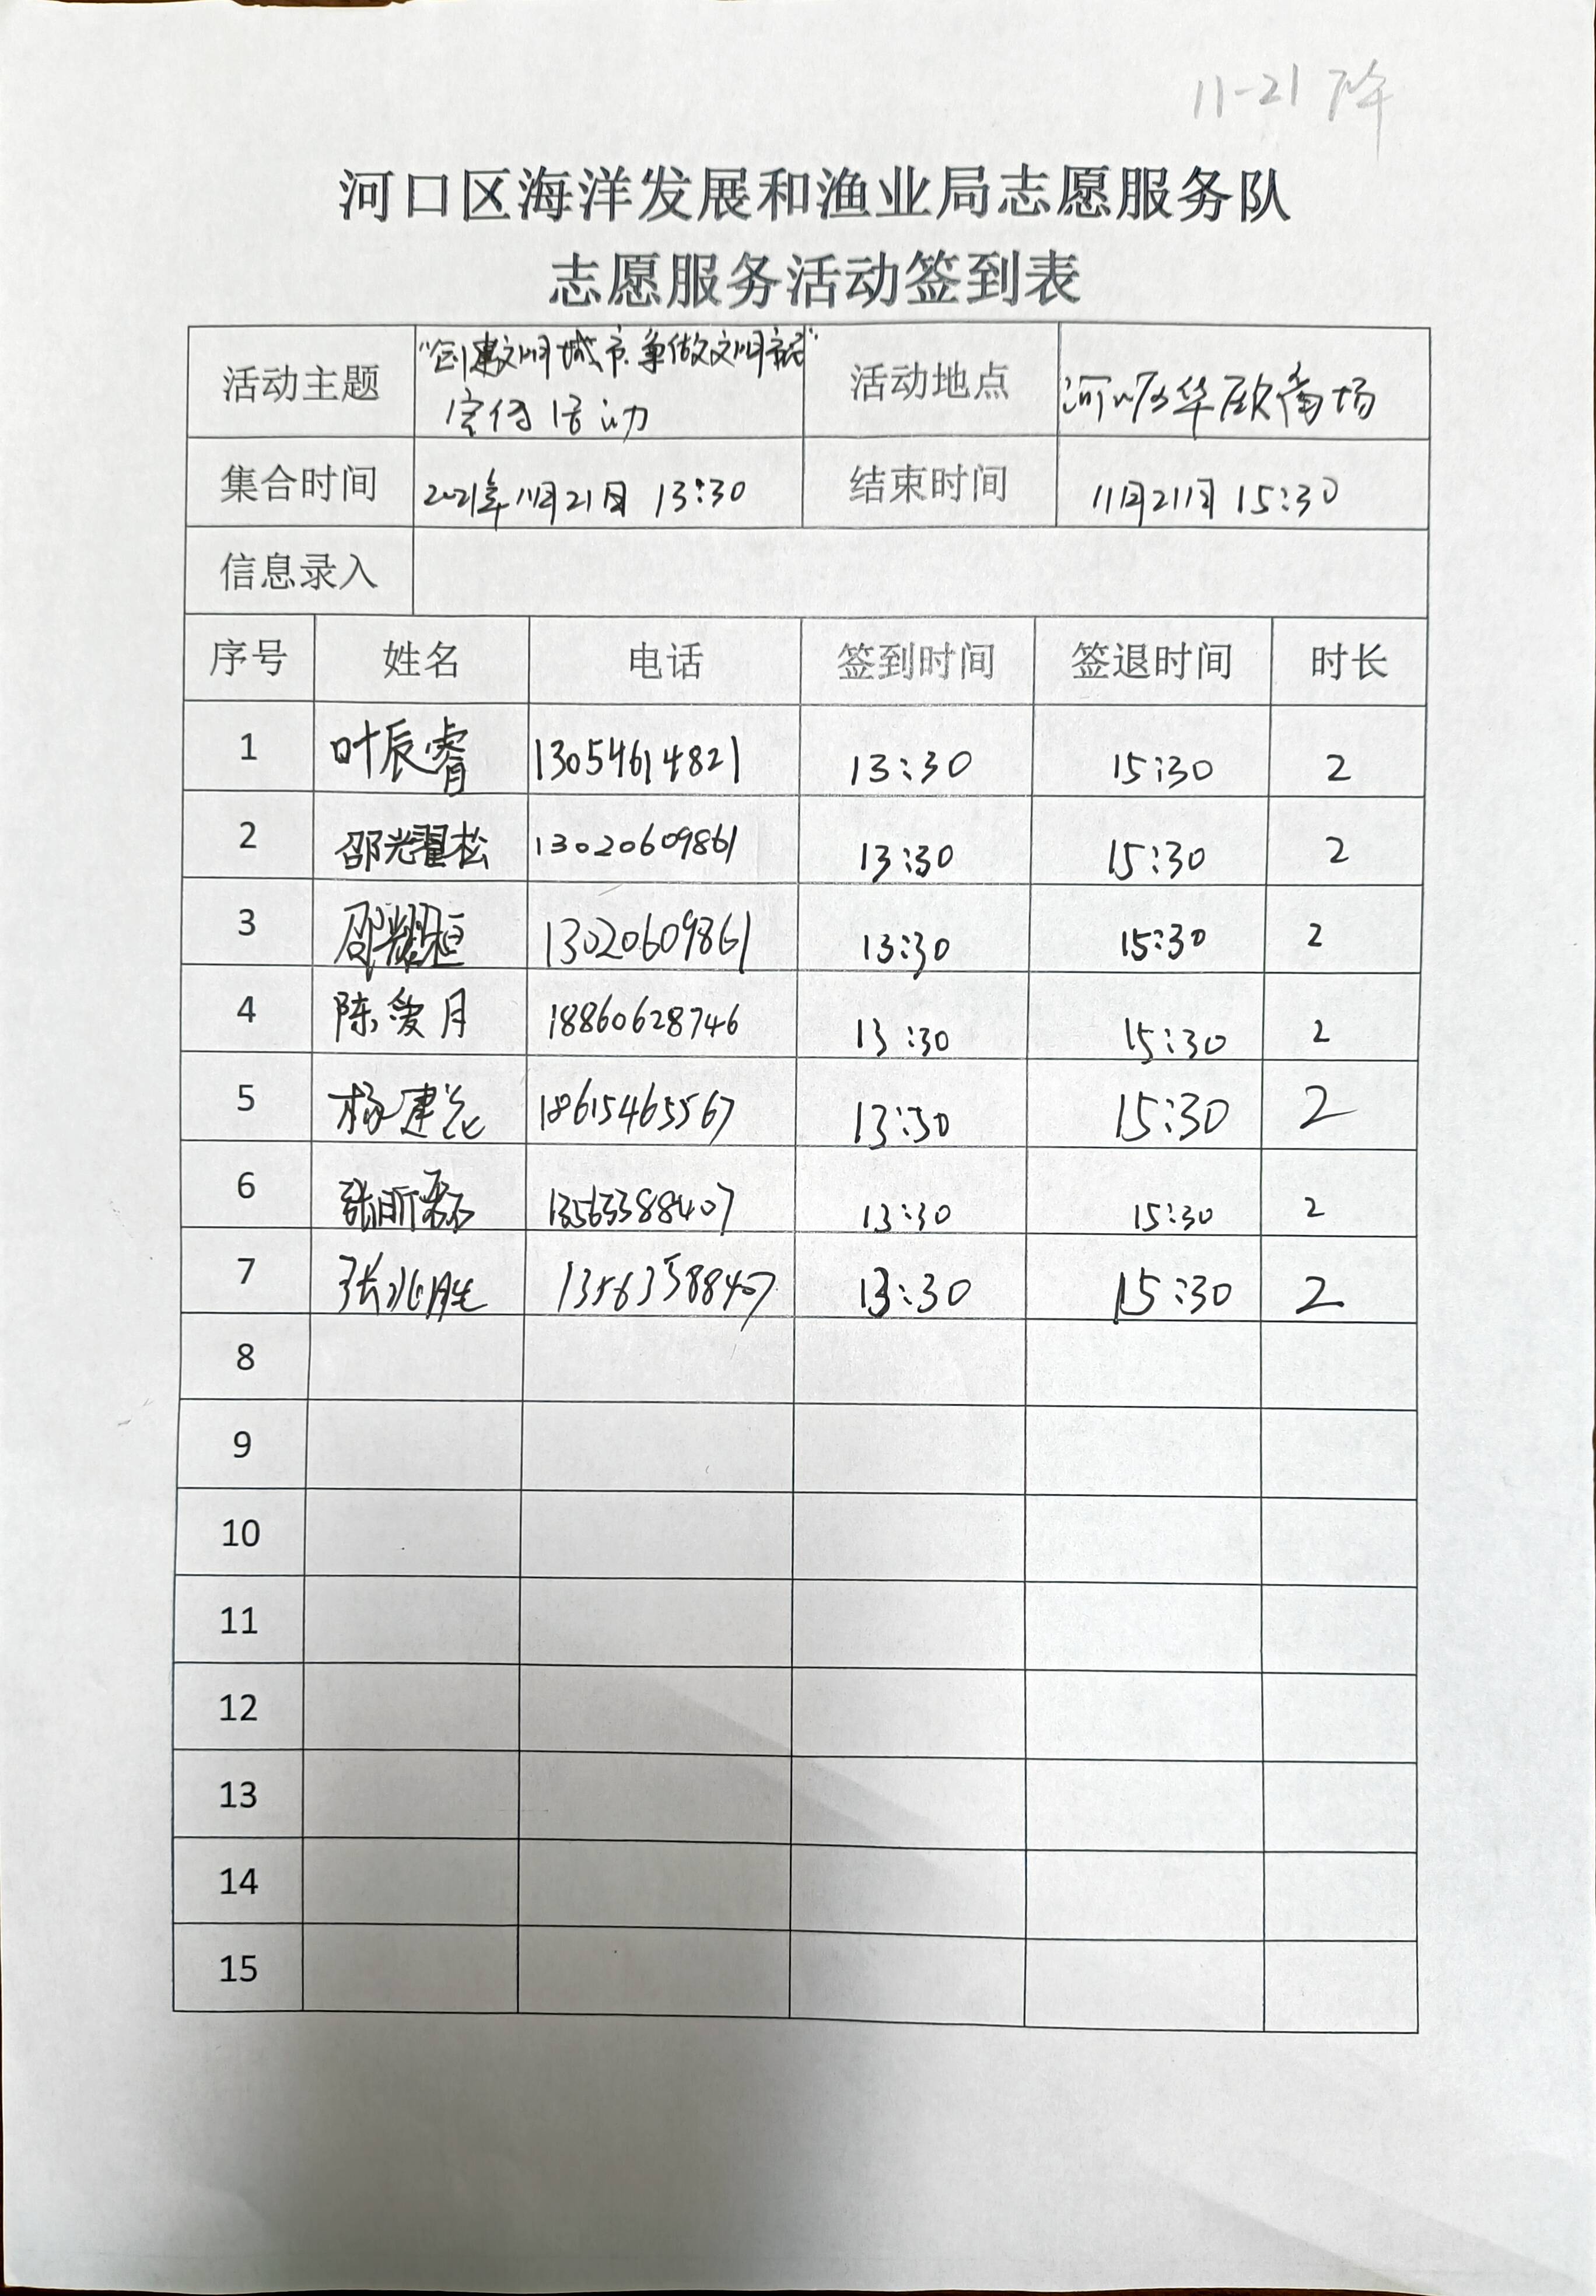 11-21 下午
河口区海洋发展和渔业局志愿服务队
志愿服务活动签到表
活动主题 "创建文明城市、争做文明市民" 宣传活动 活动地点 河口区华欧商场
集合时间 2021年11月21日 13:30 结束时间 11月21日 15:30
信息录入
序号 姓名 电话 签到时间 签退时间 时长
1 叶辰睿 13054614821 13:30 15:30 2
2 邵光耀松 13020609861 13:30 15:30 2
3 邵耀桓 13020609861 13:30 15:30 2
4 陈爱月 18860628746 13:30 15:30 2
5 杨建 18615465567 13:30 15:30 2
6 张昕磊 13563388407 13:30 15:30 2
7 张兆胜 13563588407 13:30 15:30 2
8
9
10
11
12
13
14
15